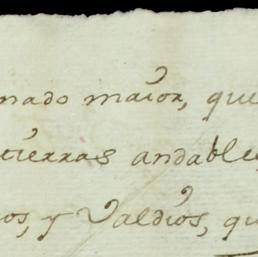 nado maior, que
tierras andables,
os, y Valdios, qu